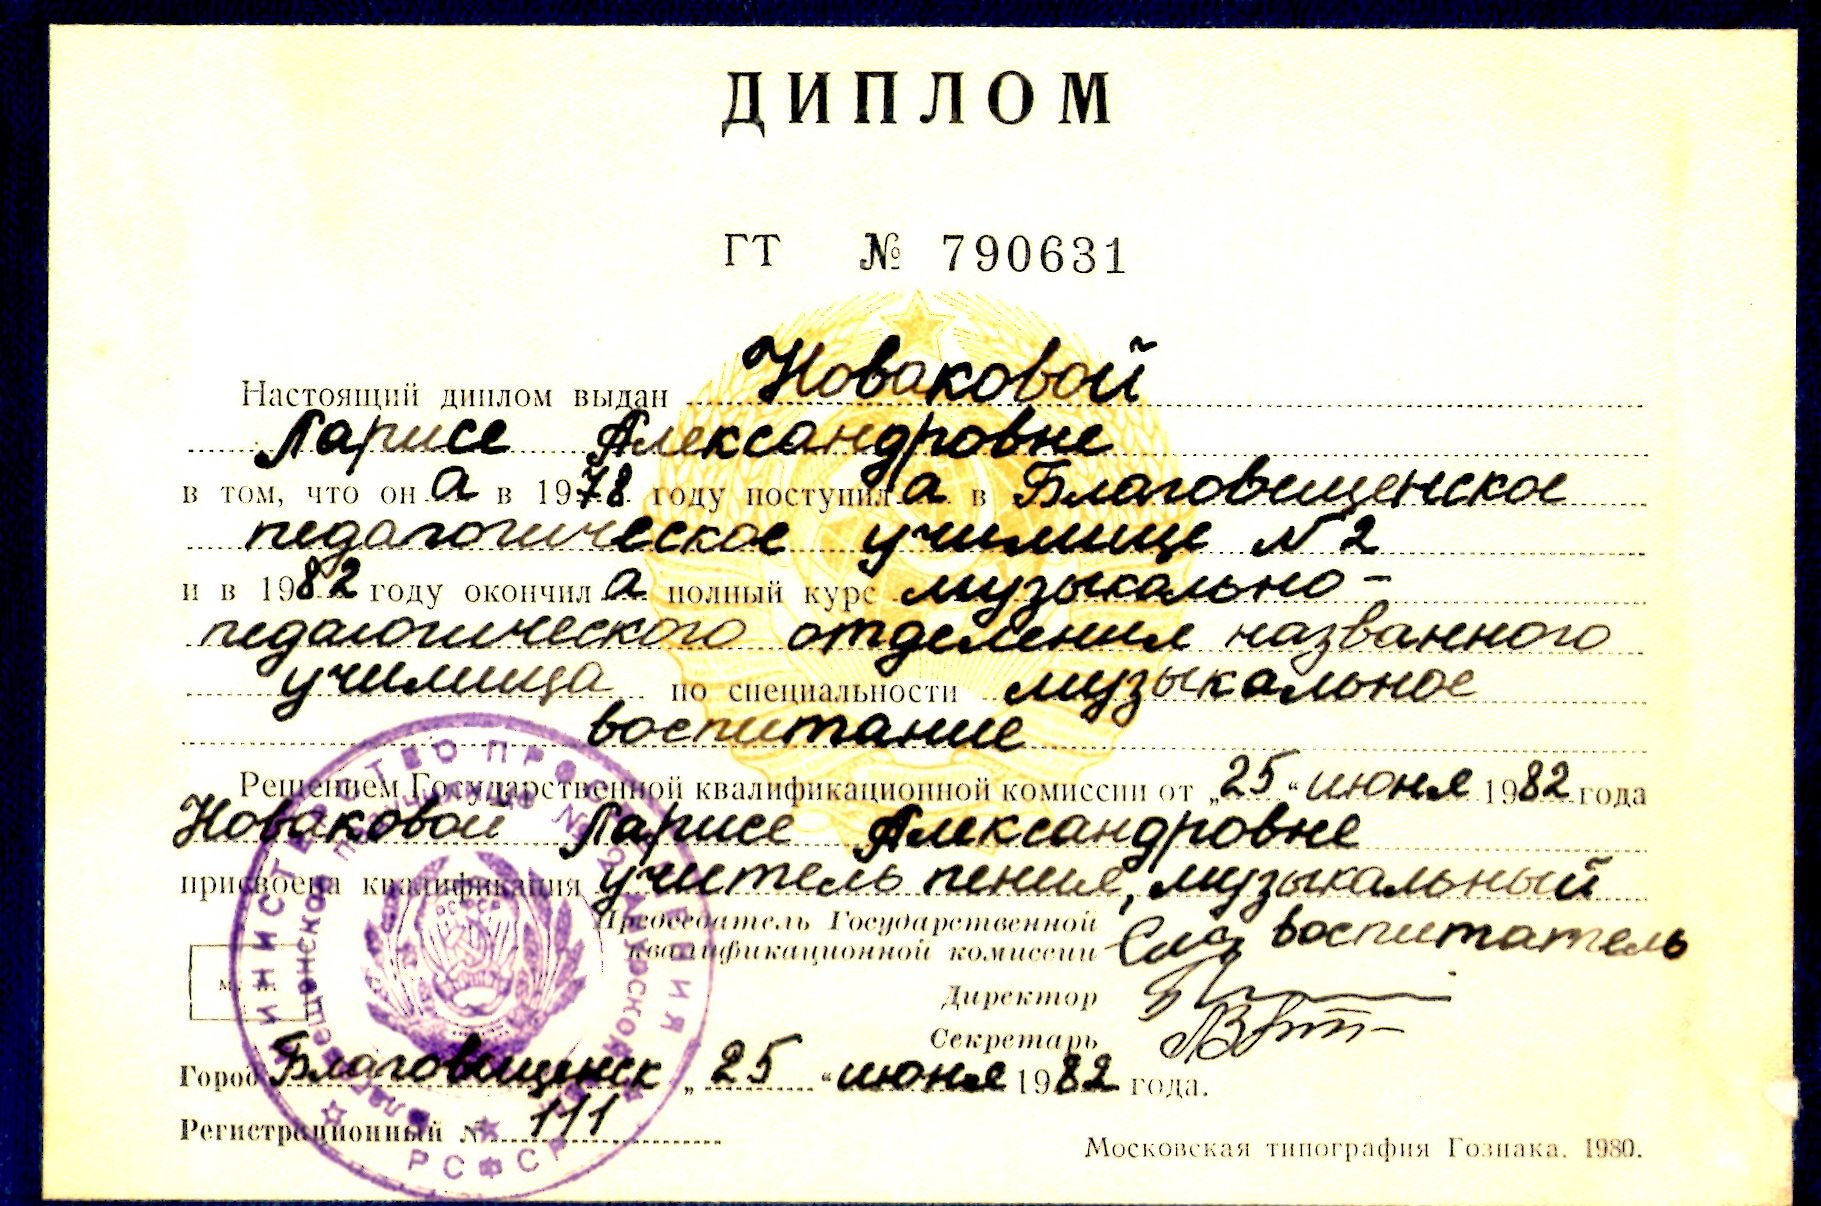 ДИПЛОМ
ГТ № 790631
Настоящий диплом выдан Новаковой
Ларисе Александровне
в том, что он а в 1978 году поступил а в Благовещенское
педагогическое училище N 2
и в 1982 году окончил а полный курс музыкально-
педагогического отделения названного
училища по специальности музыкальное
воспитание
Решением Государственной квалификационной комиссии от „25“ июня 1982 года
Новаковой Ларисе Александровне
присвоена квалификация учитель пения, музыкальный
Председатель Государственной
квалификационной комиссии воспитатель
Директор
Секретарь
Город Благовещенск „25“ июня 1982 года.
Регистрационный № 111
Московская типография Гознака. 1980.
МИНИСТЕРСТВО ПРОСВЕЩЕНИЯ
РСФСР